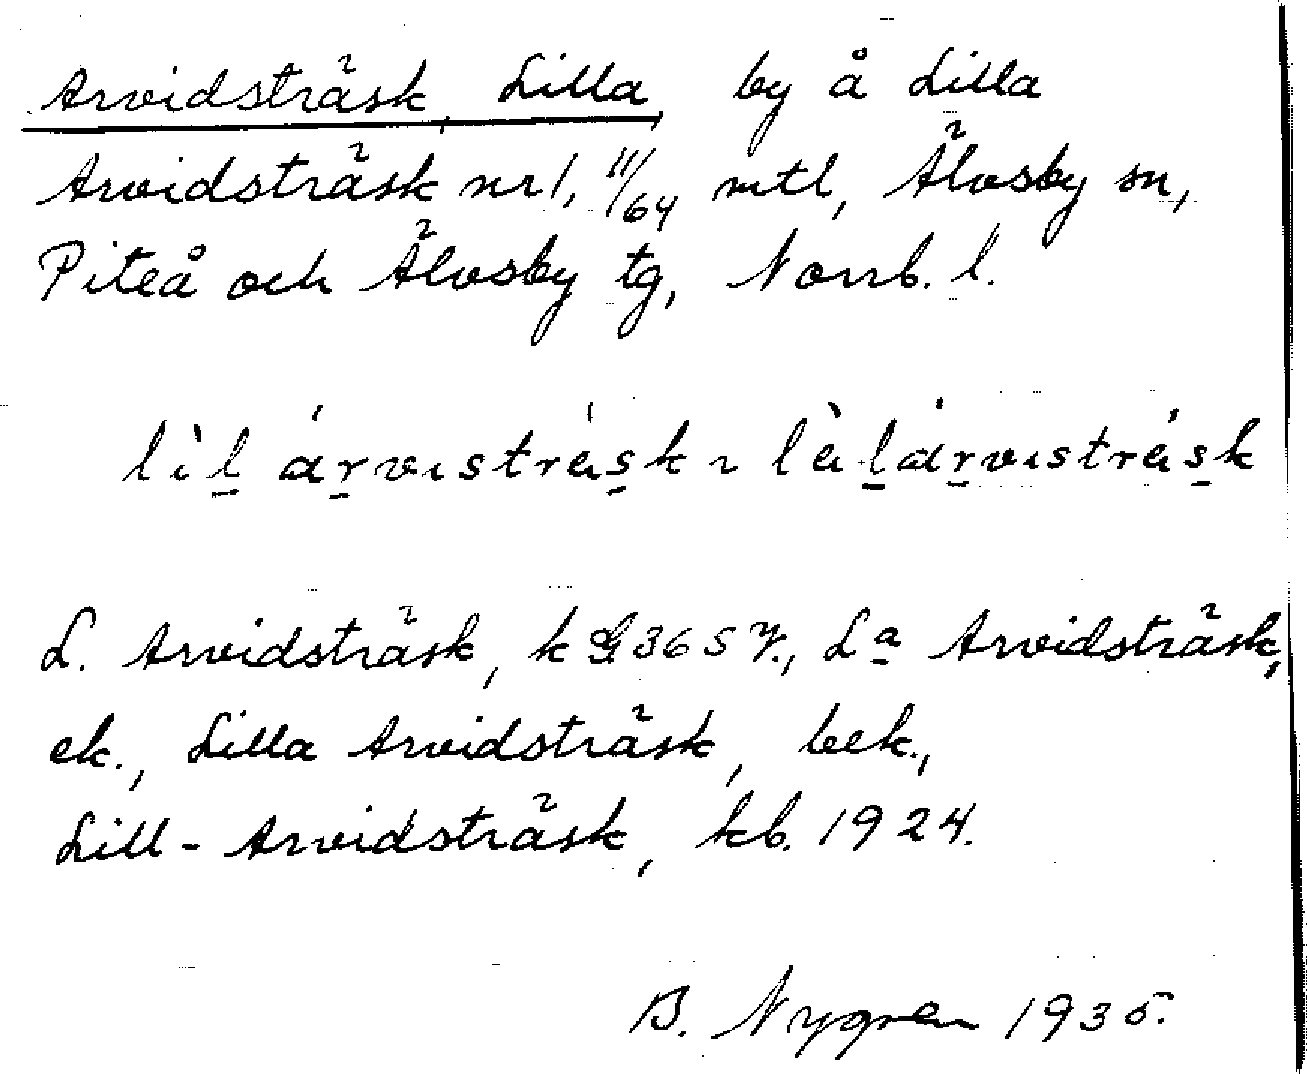 Arvidsträsk, Lilla, by å Lilla
Arvidsträsk nr 1, 11/64 mtl, Älvsby sn,
Piteå och Älvsby tg, Norrb. l.
L. Arvidsträsk, k G 365 7., La Arvidsträsk,
ek., Lilla Arvidsträsk, bek.,
Lill-Arvidsträsk, kb. 1924.
B. Nygren 1935.